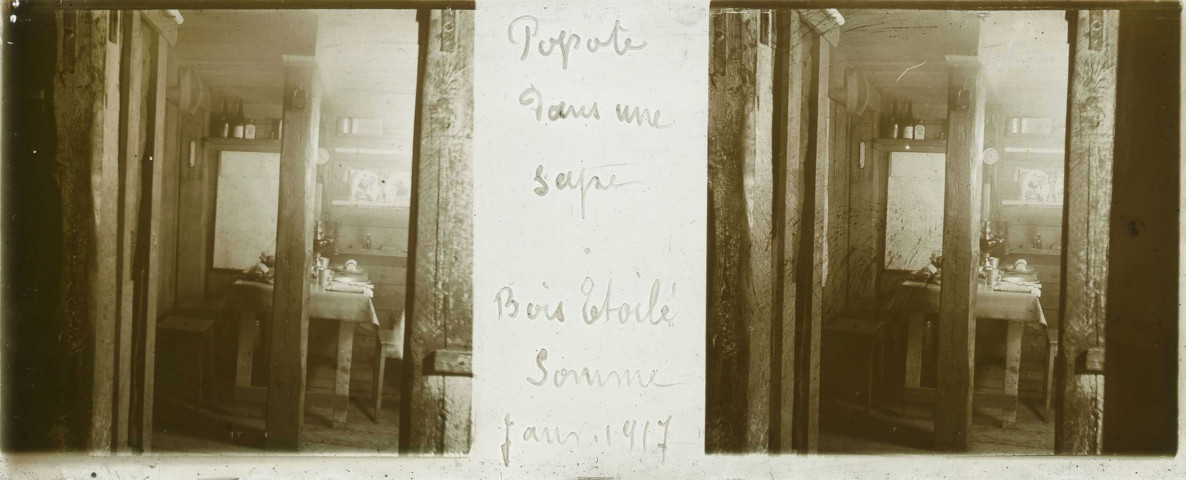 Popote
Dans une
sape
Bois Etoilé
Somme
Janv. 1917